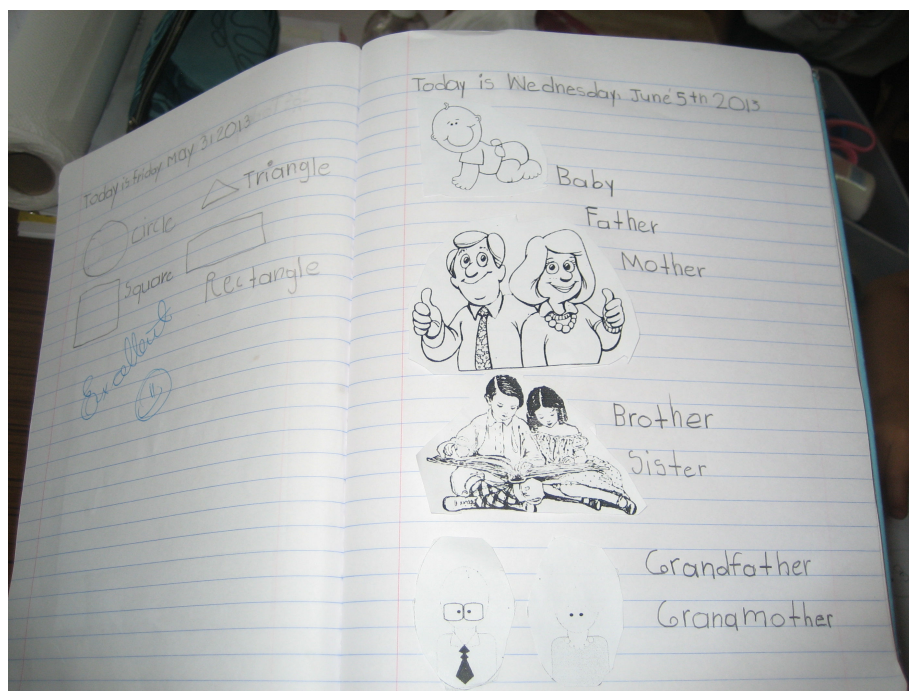 Today is friday MAY 31 2013
Triangle
Circle
Square
Rectangle
Excellent
Today is Wednesday, June 5th 2013
Baby
Father
Mother
Brother
Sister
Grandfather
Grandmother